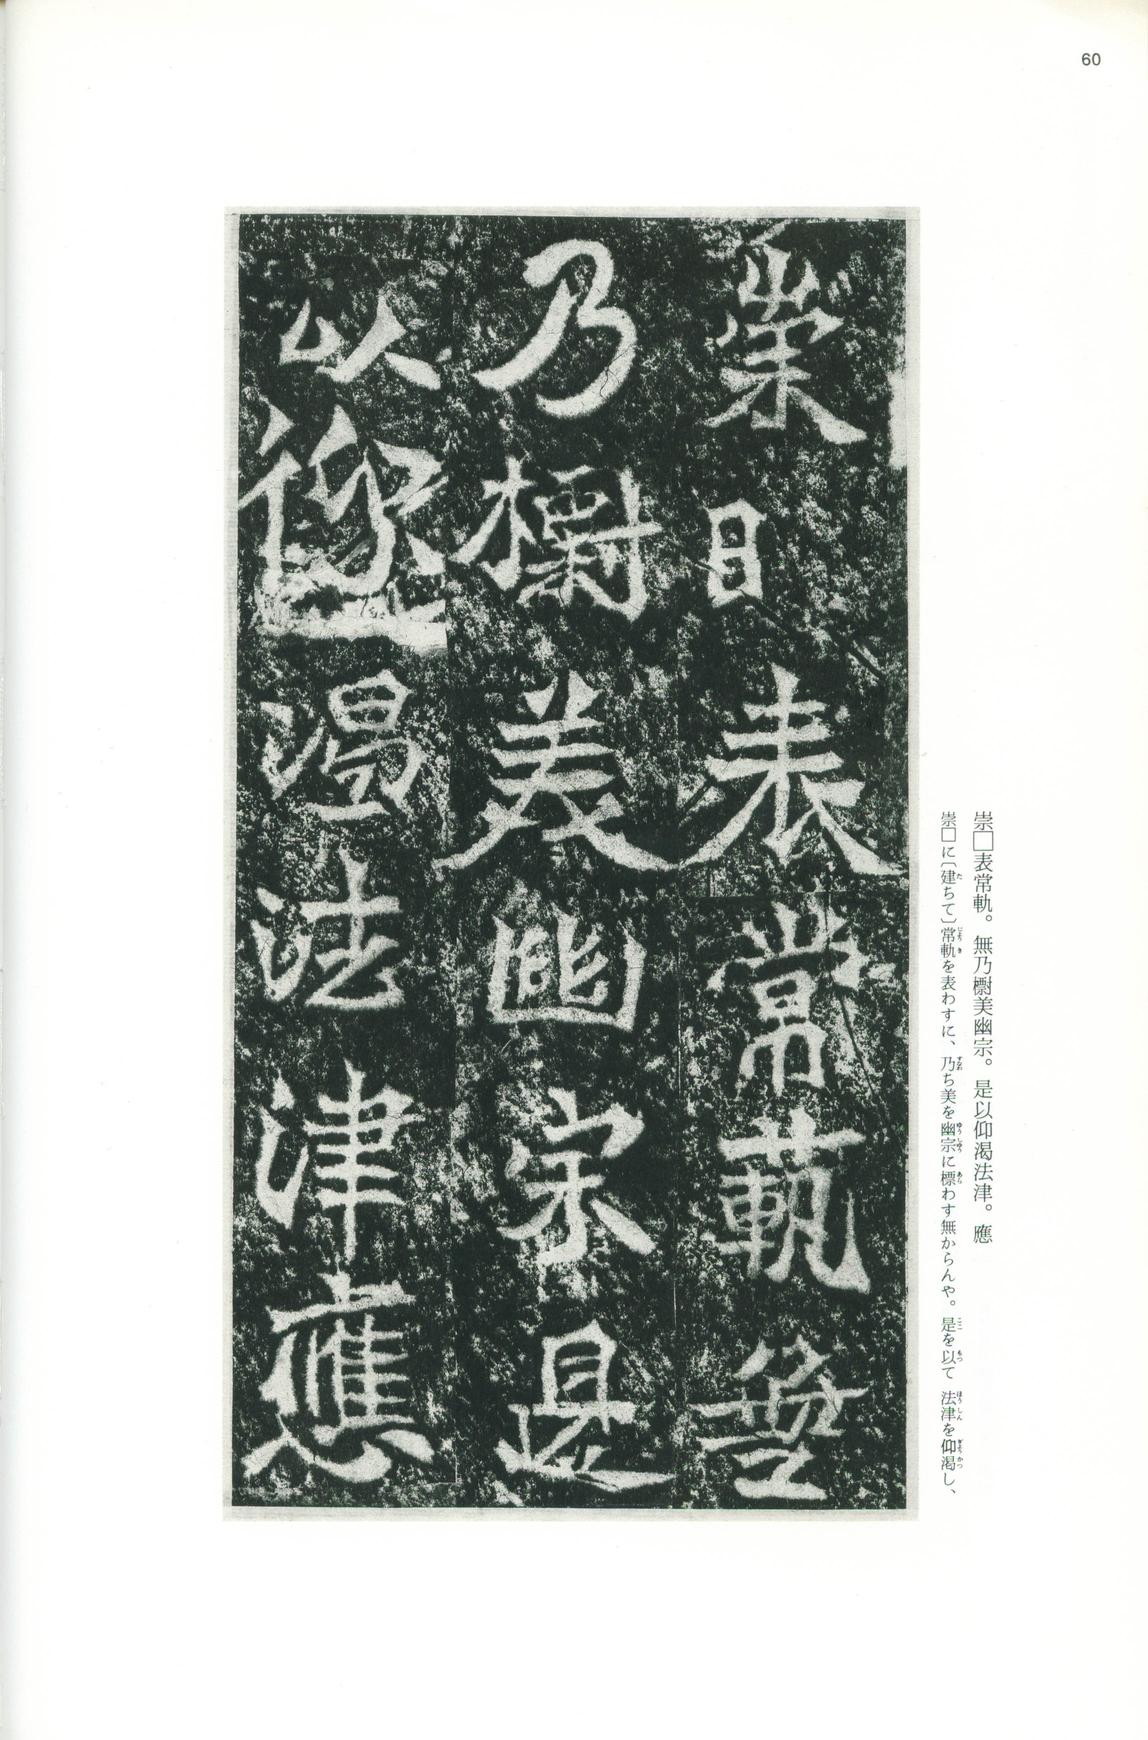 60
崇□表常軌。無乃櫉美幽宗。是以仰渇法津。應
崇□に〔建ちて〕常軌を表わすに、乃ち美を幽宗に標わす無からんや。是を以て 法津を仰渇し、
崇目表常軌無
乃櫉美幽宗是
以仰渇法津應